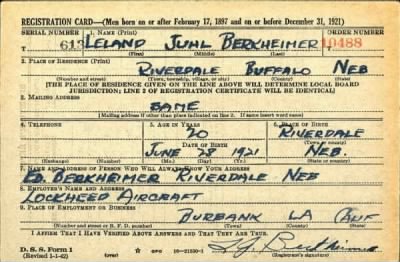 REGISTRATION CARD—(Men born on or after February 17, 1897 and on or before December 31, 1921)
SERIAL NUMBER 1. Name (Print) ORDER NUMBER
T 613 LELAND JUHL BERKHEIMER 10488
(First) (Middle) (Last)
2. PLACE OF RESIDENCE (Print)
RIVERDALE BUFFALO NEB
(Number and street) (Town, township, village, or city) (County) (State)
[THE PLACE OF RESIDENCE GIVEN ON THE LINE ABOVE WILL DETERMINE LOCAL BOARD
JURISDICTION; LINE 2 OF REGISTRATION CERTIFICATE WILL BE IDENTICAL]
3. MAILING ADDRESS
SAME
[Mailing address if other than place indicated on line 2. If same insert word same]
4. TELEPHONE 5. AGE IN YEARS 6. PLACE OF BIRTH
20 RIVERDALE
DATE OF BIRTH (Town or county)
JUNE 28 1921 NEB.
(Exchange) (Number) (Mo.) (Day) (Yr.) (State or country)
7. NAME AND ADDRESS OF PERSON WHO WILL ALWAYS KNOW YOUR ADDRESS
ED. BERKHEIMER RIVERDALE NEB
8. EMPLOYER'S NAME AND ADDRESS
LOCKHEED AIRCRAFT
9. PLACE OF EMPLOYMENT OR BUSINESS
BURBANK LA CALIF
(Number and street or R. F. D. number) (Town) (County) (State)
I AFFIRM THAT I HAVE VERIFIED ABOVE ANSWERS AND THAT THEY ARE TRUE.
D. S. S. Form 1
(Revised 1-1-42) (over) 16—21630-1 L. J. Berkheimer